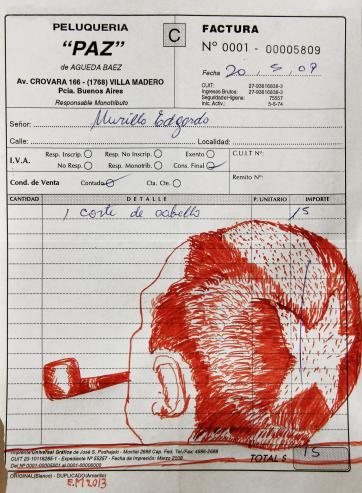 PELUQUERIA
"PAZ"
de AGUEDA BAEZ
Av. CROVARA 166 - (1768) VILLA MADERO
Pcia. Buenos Aires
Responsable Monotributo
C
FACTURA
Nº 0001 - 00005809
Fecha 20 5 09
CUIT: 27-93616838-3
Ingresos Brutos: 27-93616838-3
Seguridad e Higiene: 75557
Inic. Activ.: 5-6-74
Señor: Murillo Edgardo
Calle: Localidad:
I.V.A. Resp. Inscrip. Resp. No Inscrip. Exento C.U.I.T Nº:
No Resp. Resp. Monotrib. Cons. Final
Cond. de Venta Contado Cta. Cte. Remito Nº:
CANTIDAD DETALLE P. UNITARIO IMPORTE
1 corte de cabello 15
TOTAL $ 15
Imprenta Universal Gráfica de José S. Podhajski - Montiel 2698 Cap. Fed. Tel./Fax: 4686-2688
CUIT 20-10116285-1 - Expediente Nº 55257 - Fecha de Impresión: Marzo 2008
Del Nº 0001-00005501 al 0001-00006000
ORIGINAL (Blanco) - DUPLICADO (Amarillo)
E.M 2013